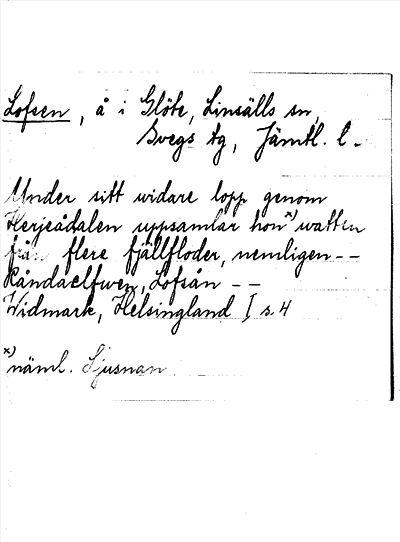 Lofsen, å i Glöte, Linsälls sn,
Svegs tg, Jämtl. l.
Under sitt widare lopp genom
Herjeådalen uppsamlar hon x) watten
från flere fjällfloder, nemligen --
Råndaelfwen, Lofsån --
Widmark, Helsingland I s. 4
x) näml. Ljusnan